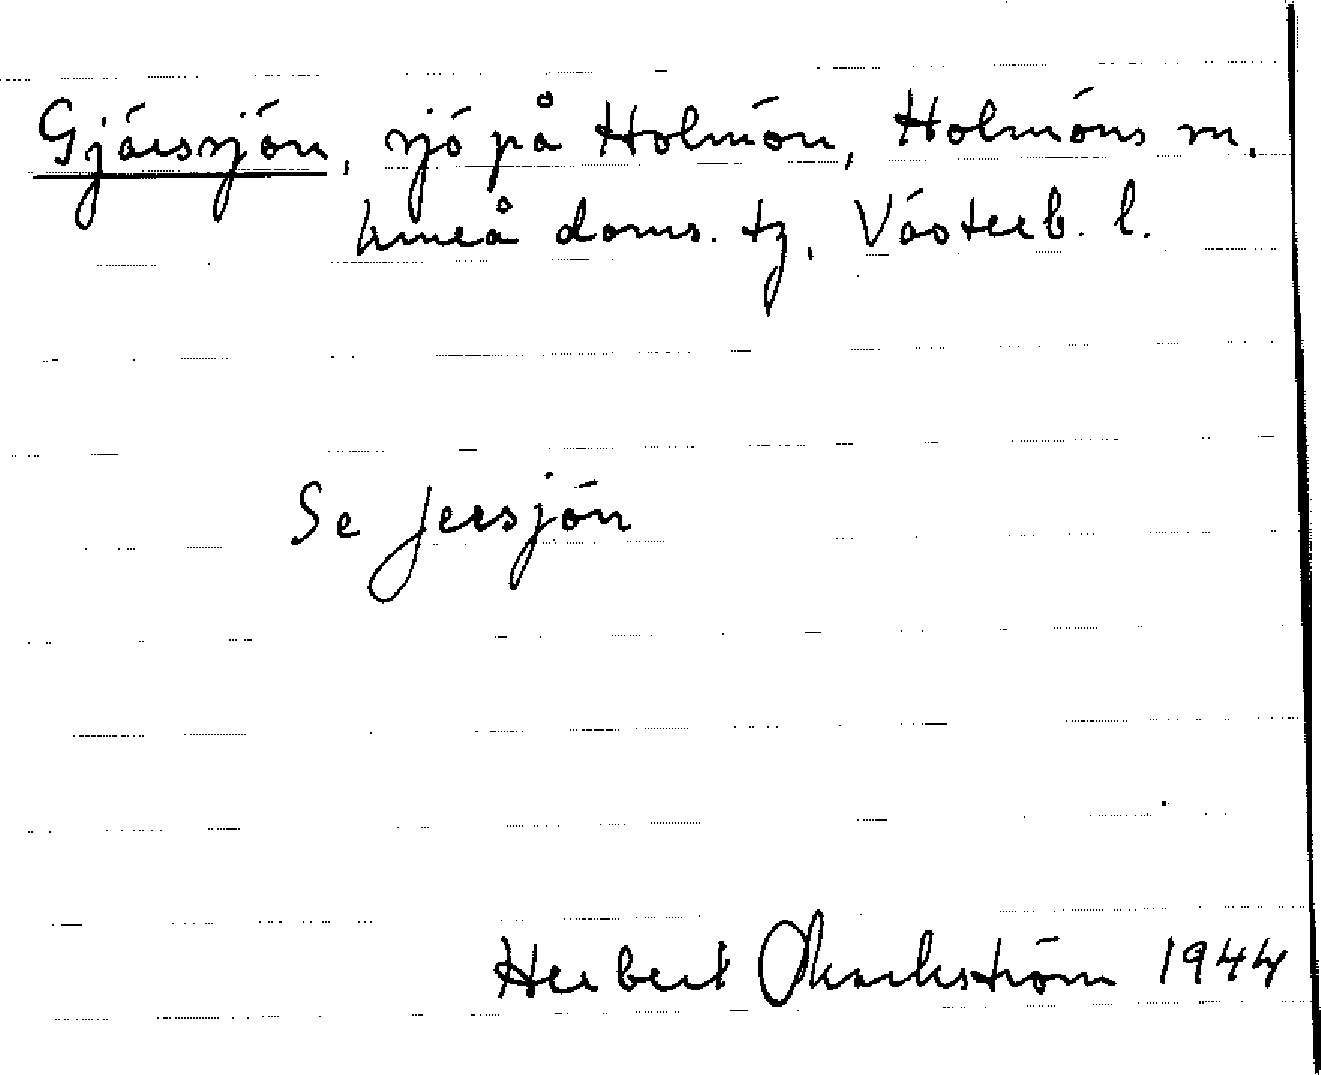 Gjärsjön, sjö på Holmön, Holmöns sn.
Umeå doms. tg, Västerb. l.
Se Jersjön
Herbert Markström 1944